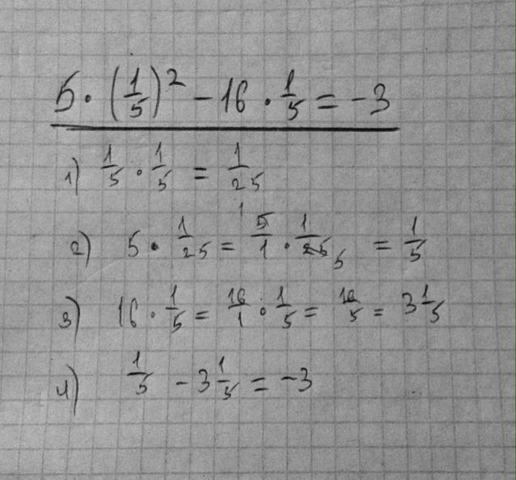 5 · (1/5)² − 16 · 1/5 = −3
1) 1/5 · 1/5 = 1/25
2) 5 · 1/25 = 5/1 · 1/25 = 1/5
3) 16 · 1/5 = 16/1 · 1/5 = 16/5 = 3 1/5
4) 1/5 − 3 1/5 = −3